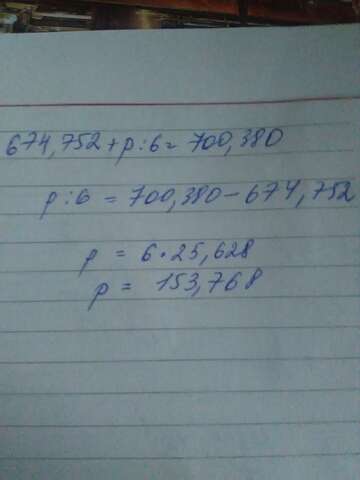 674,752+p:6=700,380
p:6 = 700,380-674,752
p = 6·25,628
p = 153,768